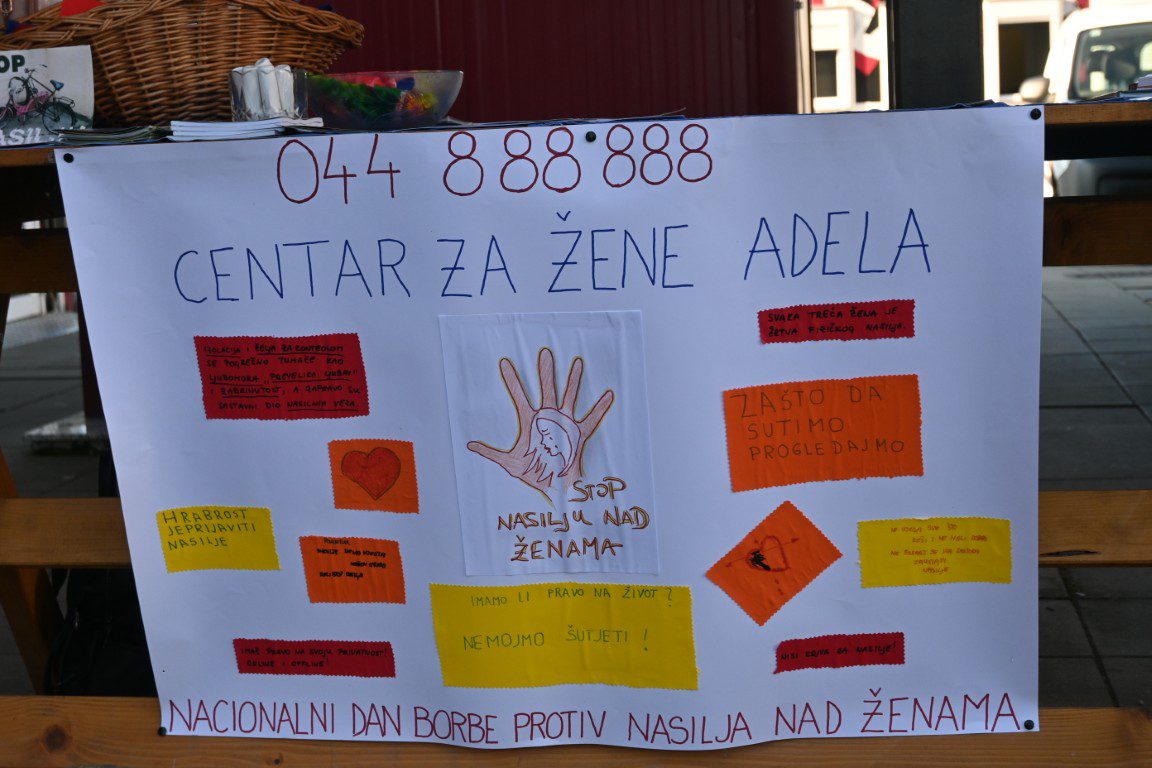 OP
044 888 888
CENTAR ZA ŽENE ADELA
IZOLACIJA I ŽELJA ZA KONTROLOM
SE POGREŠNO TUMAČE KAO
LJUBOMORA, "PREVELIKA LJUBAV" I
ZABRINUTOST, A ZAPRAVO SU
SASTAVNI DIO NASILNIH VEZA.
SVAKA TREĆA ŽENA JE
ŽRTVA FIZIČKOG NASILJA.
ZAŠTO DA
ŠUTIMO
PROGLEDAJMO
STOP
NASILJU NAD
ŽENAMA
HRABROST
JE PRIJAVITI
NASILJE
IMAMO LI PRAVO NA ŽIVOT?
NEMOJMO ŠUTJETI!
IMAŠ PRAVO NA SVOJU PRIVATNOST!
ONLINE I OFFLINE!
NISI KRIVA ZA NASILJE!
NACIONALNI DAN BORBE PROTIV NASILJA NAD ŽENAMA